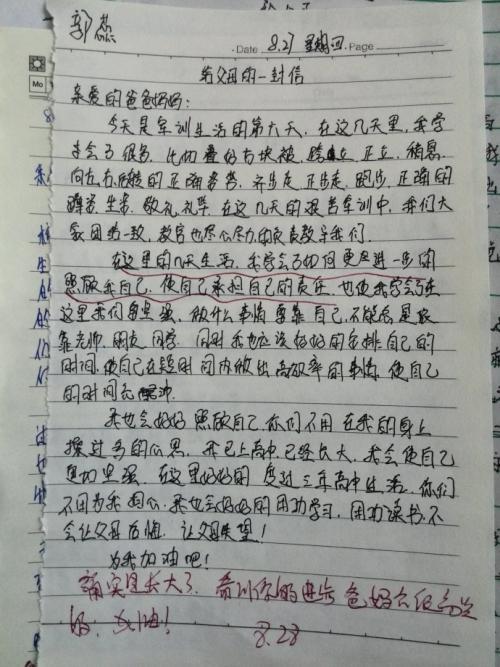 郭燕
Date 8.27 星期四 Page
给父母的一封信
亲爱的爸爸妈妈:
今天是军训生活的第六天,在这几天里,我学
会了很多,比如叠好方块被,跨立,正立,稍息,
向左右后转的正确姿势,齐步走,正步走,跑步,正确的
蹲姿,坐姿,敬礼,礼毕,在这几天的艰苦军训中,我们大
家团结一致,教官也尽心尽力的负责教导我们.
在这里的几天生活,我学会了如何更进一步的
照顾我自己,使自己承担自己的责任,也使我学会了在
这里我们要坚强,做什么事情要靠自己,不能总是依
靠老师,朋友,同学,同时我也应该好好的安排自己的
时间,使自己在短时间内做出高效率的事情,使自己
的时间充沛.
我也会好好照顾自己,你们不用在我的身上
操过多的心思,我已上高中,已经长大,我会使自己
更加坚强,在这里好好的度过三年高中生活,你们
不用为我担心,我也会好好的用功学习,用功读书,不
会让父母后悔,让父母失望!
为我加油吧!
确实是长大了,看到你的进步爸妈会很高兴
的,加油!
8.28
Mo